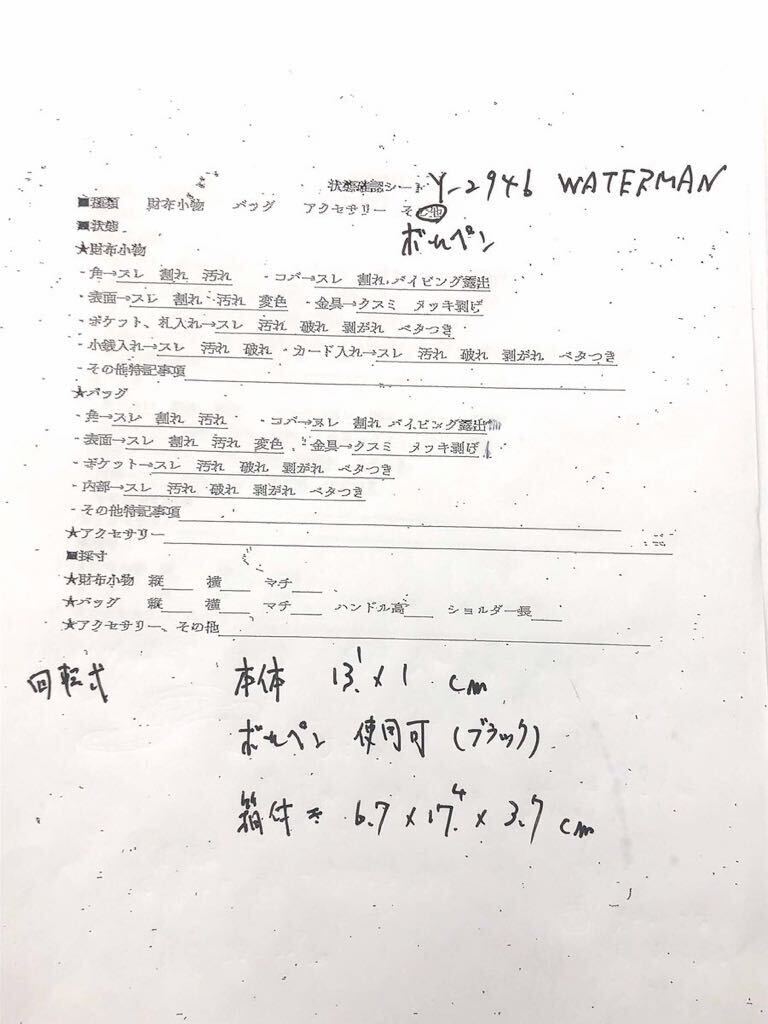 状態確認シート Y-2946 WATERMAN
■種類 財布小物 バッグ アクセサリー その他
ボールペン
■状態
★財布小物
・角→スレ 割れ 汚れ ・コバ→スレ 割れ パイピング露出
・表面→スレ 割れ 汚れ 変色 ・金具→クスミ メッキ剥げ
・ポケット、札入れ→スレ 汚れ 破れ 剥がれ ベタつき
・小銭入れ→スレ 汚れ 破れ ・カード入れ→スレ 汚れ 破れ 剥がれ ベタつき
・その他特記事項
★バッグ
・角→スレ 割れ 汚れ ・コバ→スレ 割れ パイピング露出
・表面→スレ 割れ 汚れ 変色 ・金具→クスミ メッキ剥げ
・ポケット→スレ 汚れ 破れ 剥がれ ベタつき
・内部→スレ 汚れ 破れ 剥がれ ベタつき
・その他特記事項
★アクセサリー
■採寸
★財布小物 縦 横 マチ
★バッグ 縦 横 マチ ハンドル高 ショルダー長
★アクセサリー、その他
回転式 本体 13.1 x 1 cm
ボールペン 使用可 (ブラック)
箱付き 6.7 x 17.4 x 3.7 cm